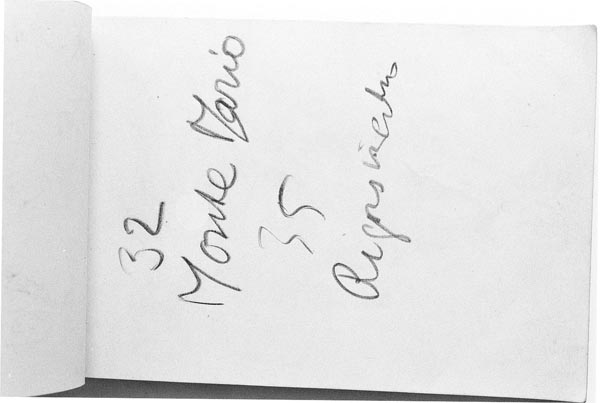 32
Monte Mario
35